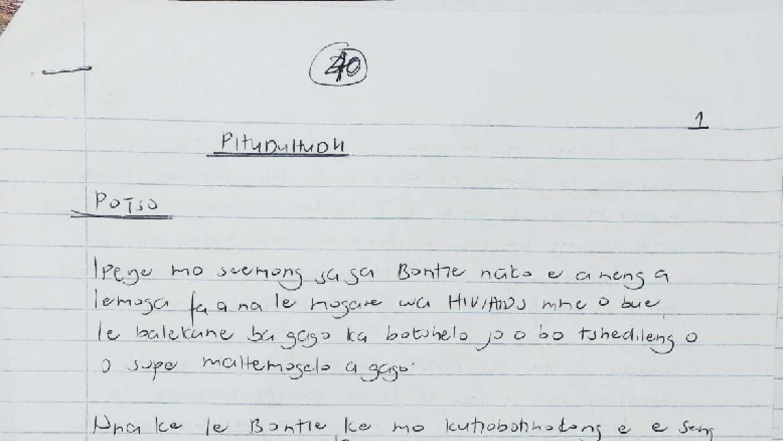 40
1
Pitupultuon
POTSO
Ipeye mo seemong sa ga Bontle nako e aneng a
lemoga fa a na le mogare wa HIV/AIDS mme o bue
le balekane ba gago ka botshelo jo o bo tshedileng o
o supe maitemogelo a gago.
Nna ke le Bontle ke mo kutlobotlhokong e e seng